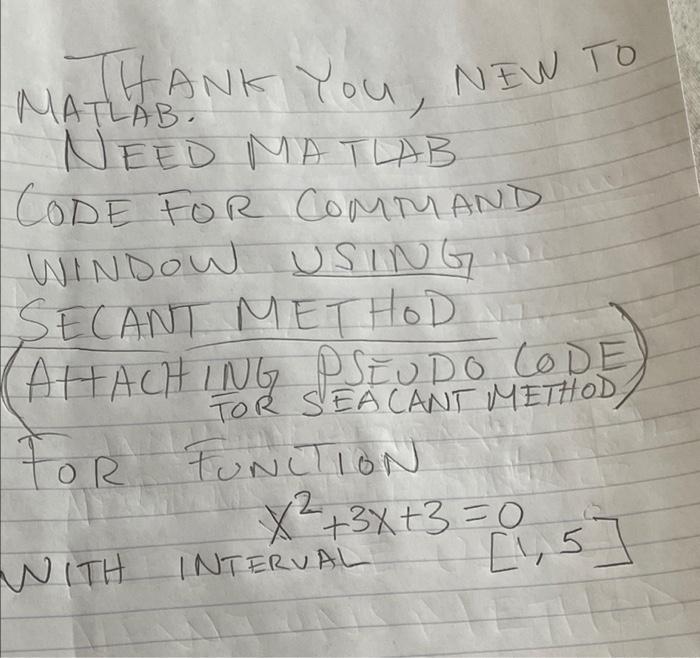 THANK YOU, NEW TO
MATLAB.
NEED MATLAB
CODE FOR COMMAND
WINDOW USING
SECANT METHOD
(ATTACHING PSEUDO CODE
FOR SEACANT METHOD)
FOR FUNCTION
x²+3x+3=0
WITH INTERVAL [1,5]